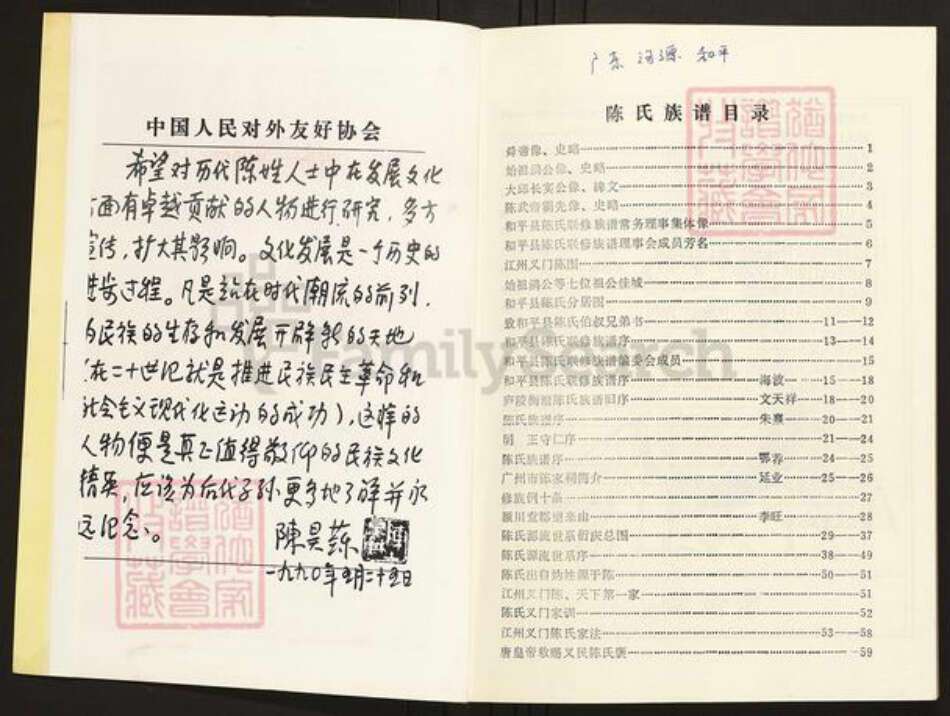 中国人民对外友好协会
希望对历代陈姓人士中在发展文化
方面有卓越贡献的人物进行研究，多方
宣传，扩大其影响。文化发展是一个历史的
进步过程。凡是站在时代潮流的前列，
为民族的生存和发展开辟新的天地
（在二十世纪就是推进民族民主革命和
社会主义现代化运动的成功），这样的
人物便是真正值得敬仰的民族文化
精英，应该为后代子孙更多地了解并永
远纪念。
陳昊蘇
一九九〇年五月二十五日
广东 河源 和平
陈氏族谱目录
舜帝像、史略 1
始祖满公像、史略 2
大邱长实公像、碑文 3
陈武帝霸先像、史略 4
和平县陈氏联修族谱常务理事集体像 5
和平县陈氏联修族谱理事会成员芳名 6
江州义门陈图 7
始祖满公等七位祖公佳城 8
和平县陈氏分居图 9
致和平县陈氏伯叔兄弟书 11—12
和平县陈氏联修族谱序 13—14
和平县陈氏联修族谱编委会成员 15
和平县陈氏联修族谱序 海波 15—18
陈氏族谱旧序 文天祥 18—20
陈氏族谱序 朱熹 20—21
明 王守仁序 21—24
陈氏族谱序 24—25
广州市陈家祠简介 延业 25—26
修族例十条 27
颍川堂郡望来由 李旺 28
陈氏源流世系衍庆总图 29—37
陈氏源流世系序 38—49
陈氏出自妫姓源于陈 50—51
江州义门陈、天下第一家 51
陈氏义门家训 52
江州义门陈氏家法 53—58
唐皇帝敕赐义民陈氏褒 59
FamilySearch